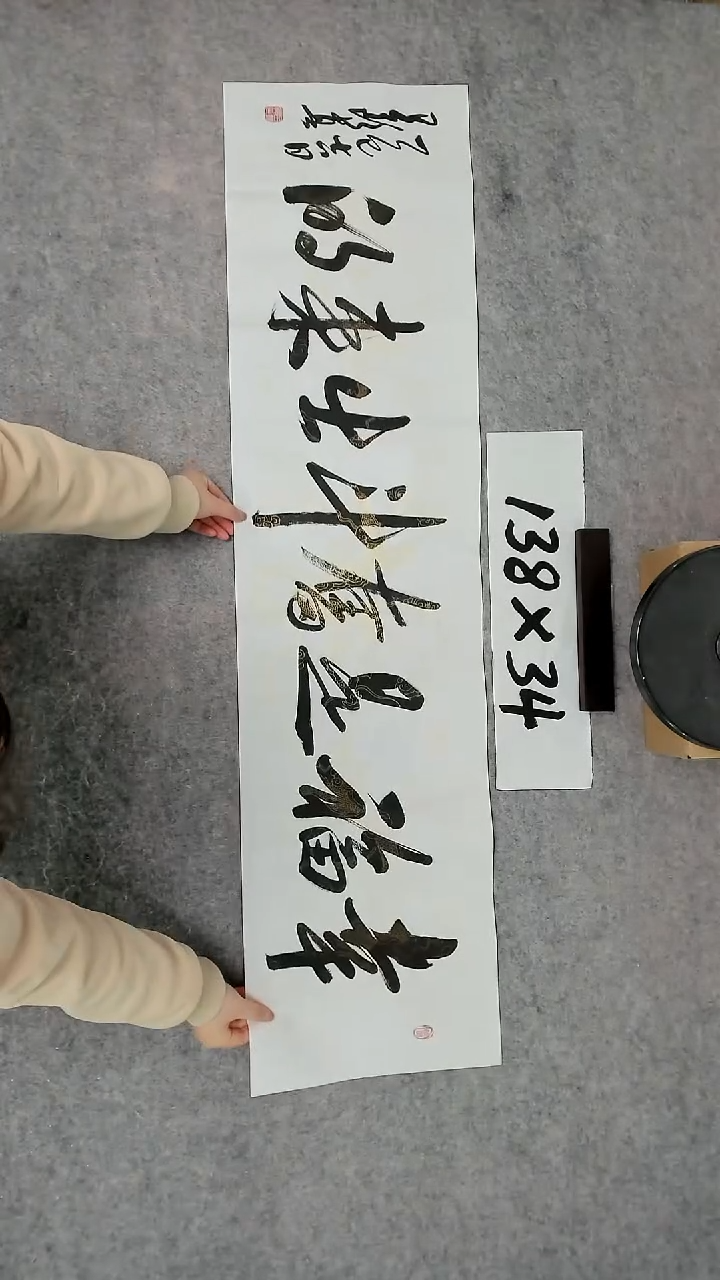 幸福是奮斗出来的
138×34